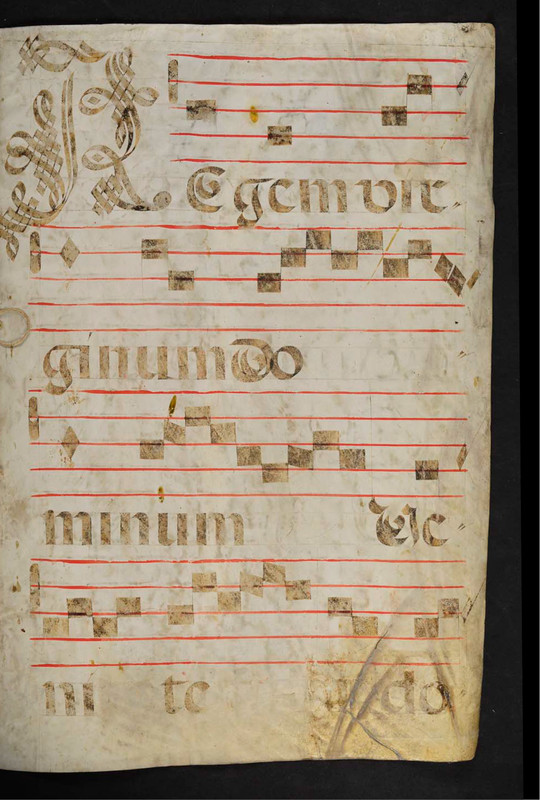 REgem vir
ginum Do
minum Ve
ni te ado